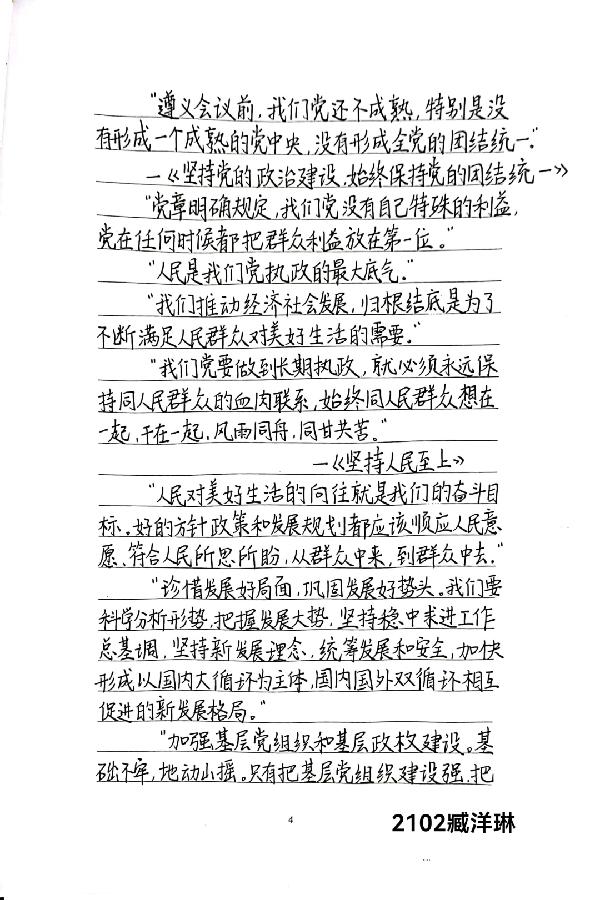 “遵义会议前，我们党还不成熟，特别是没
有形成一个成熟的党中央，没有形成全党的团结统一.”
—《坚持党的政治建设、始终保持党的团结统一》
“党章明确规定，我们党没有自己特殊的利益，
党在任何时候都把群众利益放在第一位。”
“人民是我们党执政的最大底气。”
“我们推动经济社会发展，归根结底是为了
不断满足人民群众对美好生活的需要。”
“我们党要做到长期执政，就必须永远保
持同人民群众的血肉联系，始终同人民群众想在
一起，干在一起，风雨同舟，同甘共苦。”
—《坚持人民至上》
“人民对美好生活的向往就是我们的奋斗目
标。好的方针政策和发展规划都应该顺应人民意
愿、符合人民所思所盼，从群众中来，到群众中去.”
“珍惜发展好局面，巩固发展好势头。我们要
科学分析形势，把握发展大势，坚持稳中求进工作
总基调，坚持新发展理念，统筹发展和安全，加快
形成以国内大循环为主体，国内国外双循环相互
促进的新发展格局。”
“加强基层党组织和基层政权建设。基
础不牢，地动山摇。只有把基层党组织建设强、把
4
2102臧洋琳
...